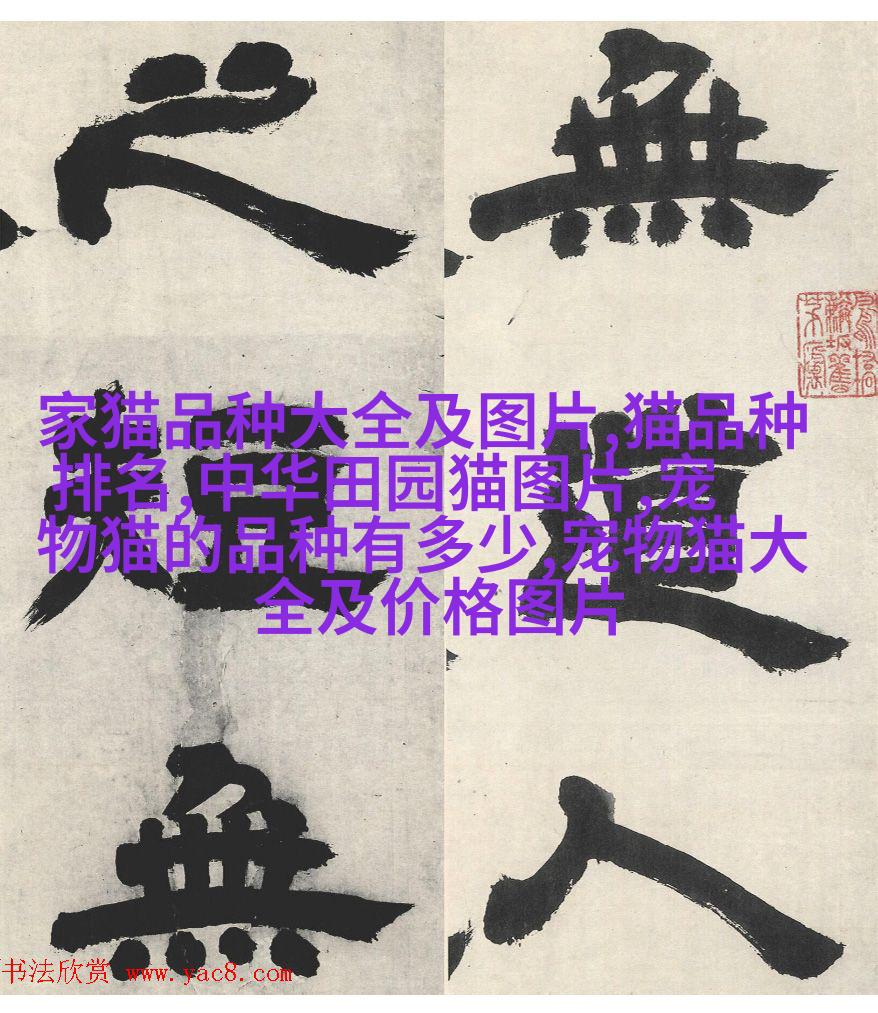 無道人
之短無
家猫品种大全及图片,猫品种
排名,中华田园猫图片,宠
物猫的品种有多少,宠物猫大
全及价格图片
书法欣赏 www.yac8.com